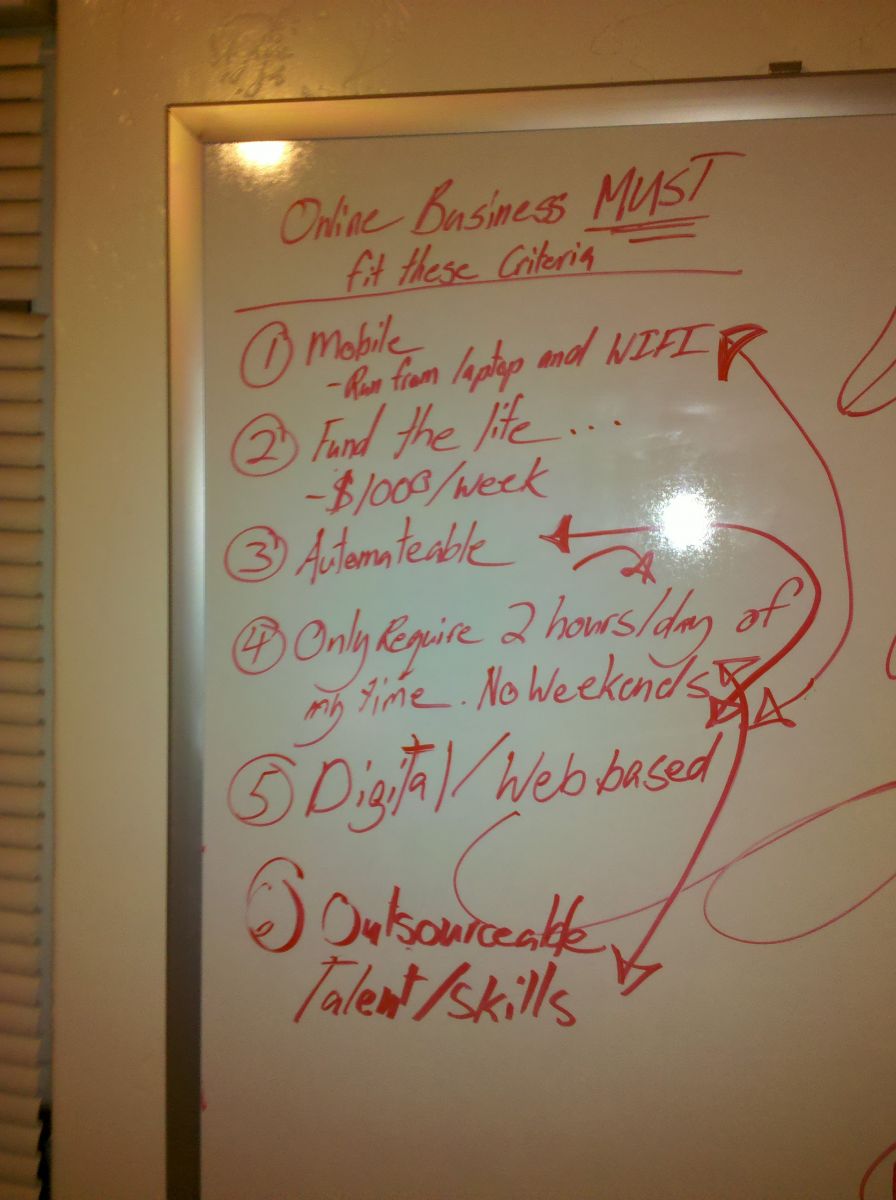 Online Business MUST
fit these Criteria
1 Mobile
- Run from laptop and WIFI
2 Fund the life ...
- $1000/week
3 Automateable
4 Only Require 2 hours/day of
my time. No Weekends
5 Digital/Web based
6 Outsourceable
Talent/skills